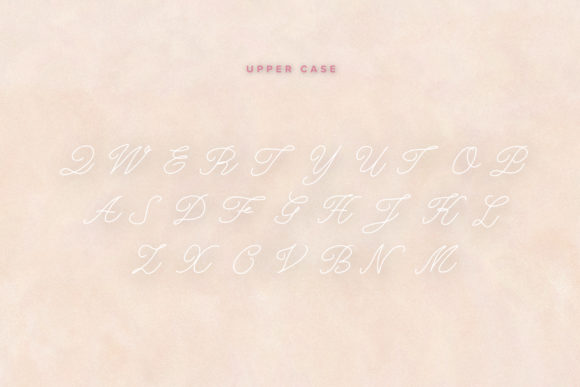 UPPER CASE
Q W E R T Y U I O P
A S D F G H J K L
Z X C V B N M